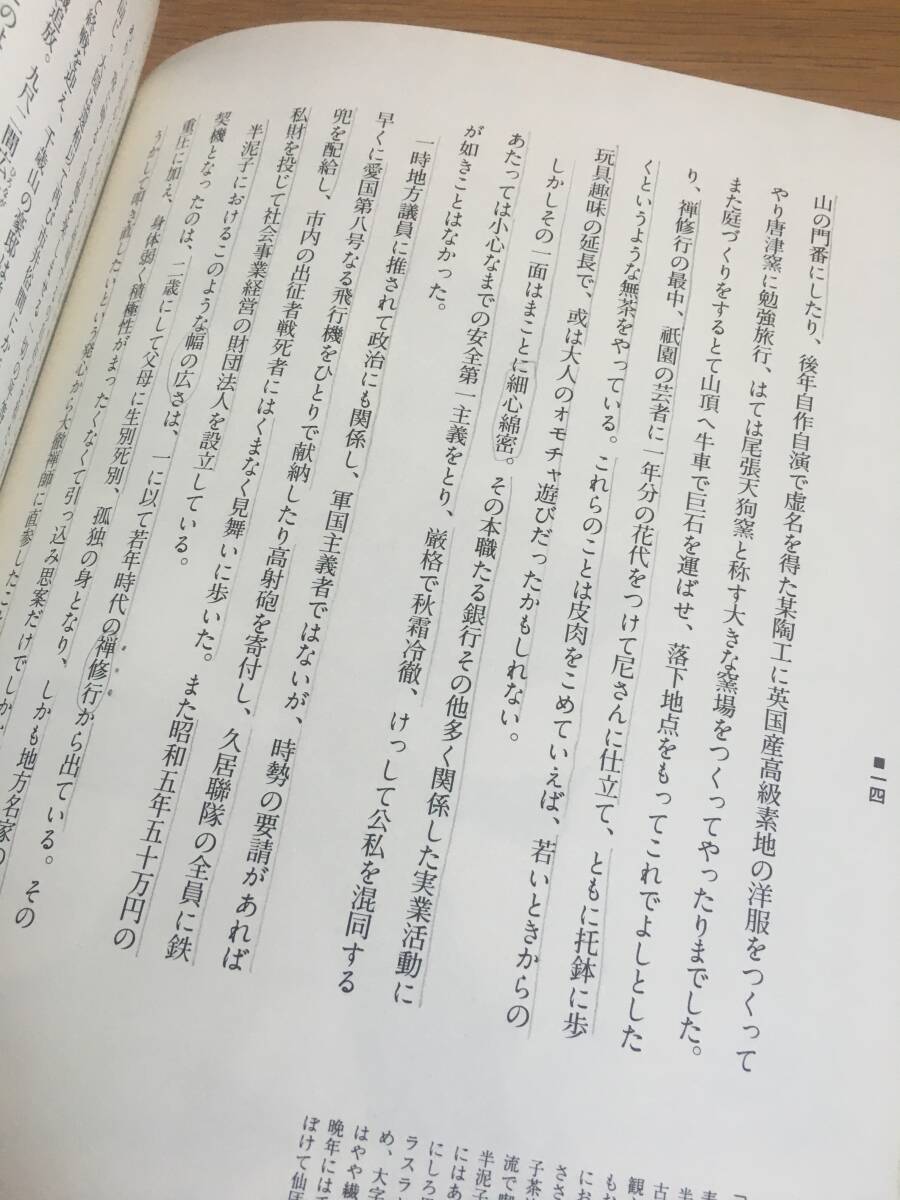 ■一四
山の門番にしたり、後年自作自演で虚名を得た某陶工に英国産高級素地の洋服をつくって
やり唐津窯に勉強旅行、はては尾張天狗窯と称す大きな窯場をつくってやったりまでした。
また庭づくりをするとて山頂へ牛車で巨石を運ばせ、落下地点をもってこれでよしとした
り、禅修行の最中、祇園の芸者に一年分の花代をつけて尼さんに仕立て、ともに托鉢に歩
くというような無茶をやっている。これらのことは皮肉をこめていえば、若いときからの
玩具趣味の延長で、或は大人のオモチャ遊びだったかもしれない。
しかしその一面はまことに細心綿密。その本職たる銀行その他多く関係した実業活動に
あたっては小心なまでの安全第一主義をとり、厳格で秋霜冷徹、けっして公私を混同する
が如きことはなかった。
一時地方議員に推されて政治にも関係し、軍国主義者ではないが、時勢の要請があれば
早くに愛国第八号なる飛行機をひとりで献納したり高射砲を寄付し、久居聯隊の全員に鉄
兜を配給し、市内の出征者戦死者にはくまなく見舞いに歩いた。また昭和五年五十万円の
私財を投じて社会事業経営の財団法人を設立している。
半泥子におけるこのような幅の広さは、一に以て若年時代の禅修行から出ている。その
契機となったのは、二歳にして父母に生別死別、孤独の身となり、しかも地方名家の
重圧に加え、身体弱く積極性がまったくなくて引っ込み思案だけでしか
うかして叩き直したいという発心から大徹禅師に直参したこ
て終戦を迎え、千歳山の豪邸は
追放。九尺二間
観
にお
ささ
子茶
流で
半泥子
にはあ
にしろ
ラスラ
め、大字
はやや繊
晩年には
ぼけて仙